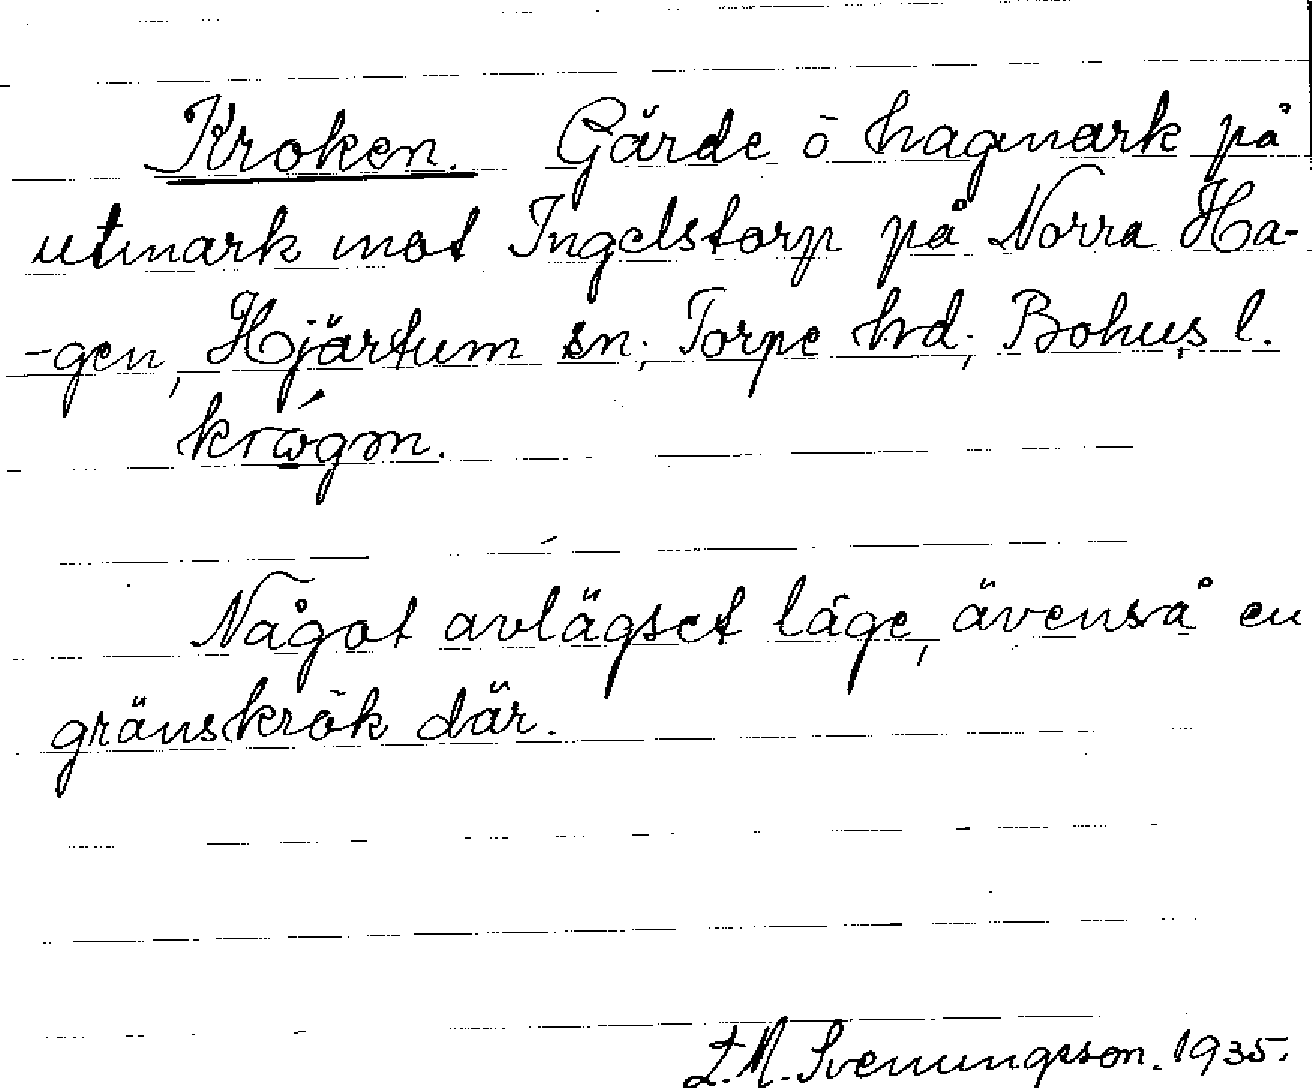 Kroken. Gärde ö hagmark på
utmark mot Ingelstorp på Norra Ha-
-gen, Hjärtum sn; Torpe hrd; Bohus l.
Något avlägset läge, ävenså en
gränskrök där.
L.M. Svenungsson. 1935.